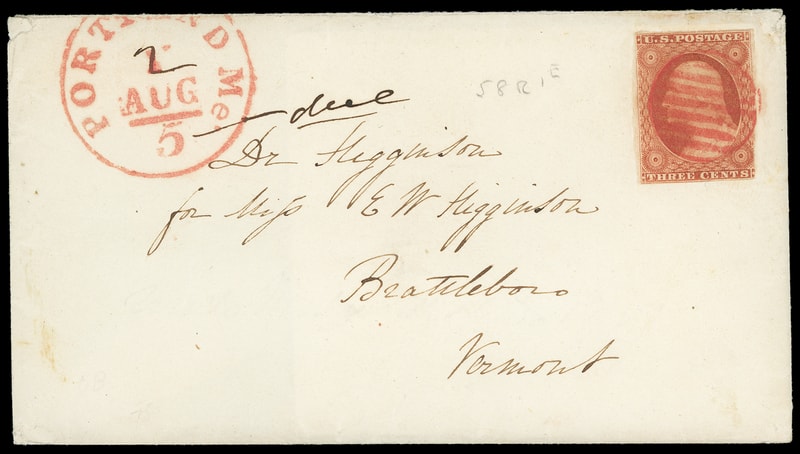 PORTLAND Me.
2
AUG
5
due
58R1E
U.S. POSTAGE
THREE CENTS
Dr Higginson
for Miss E W Higginson
Brattleboro
Vermont